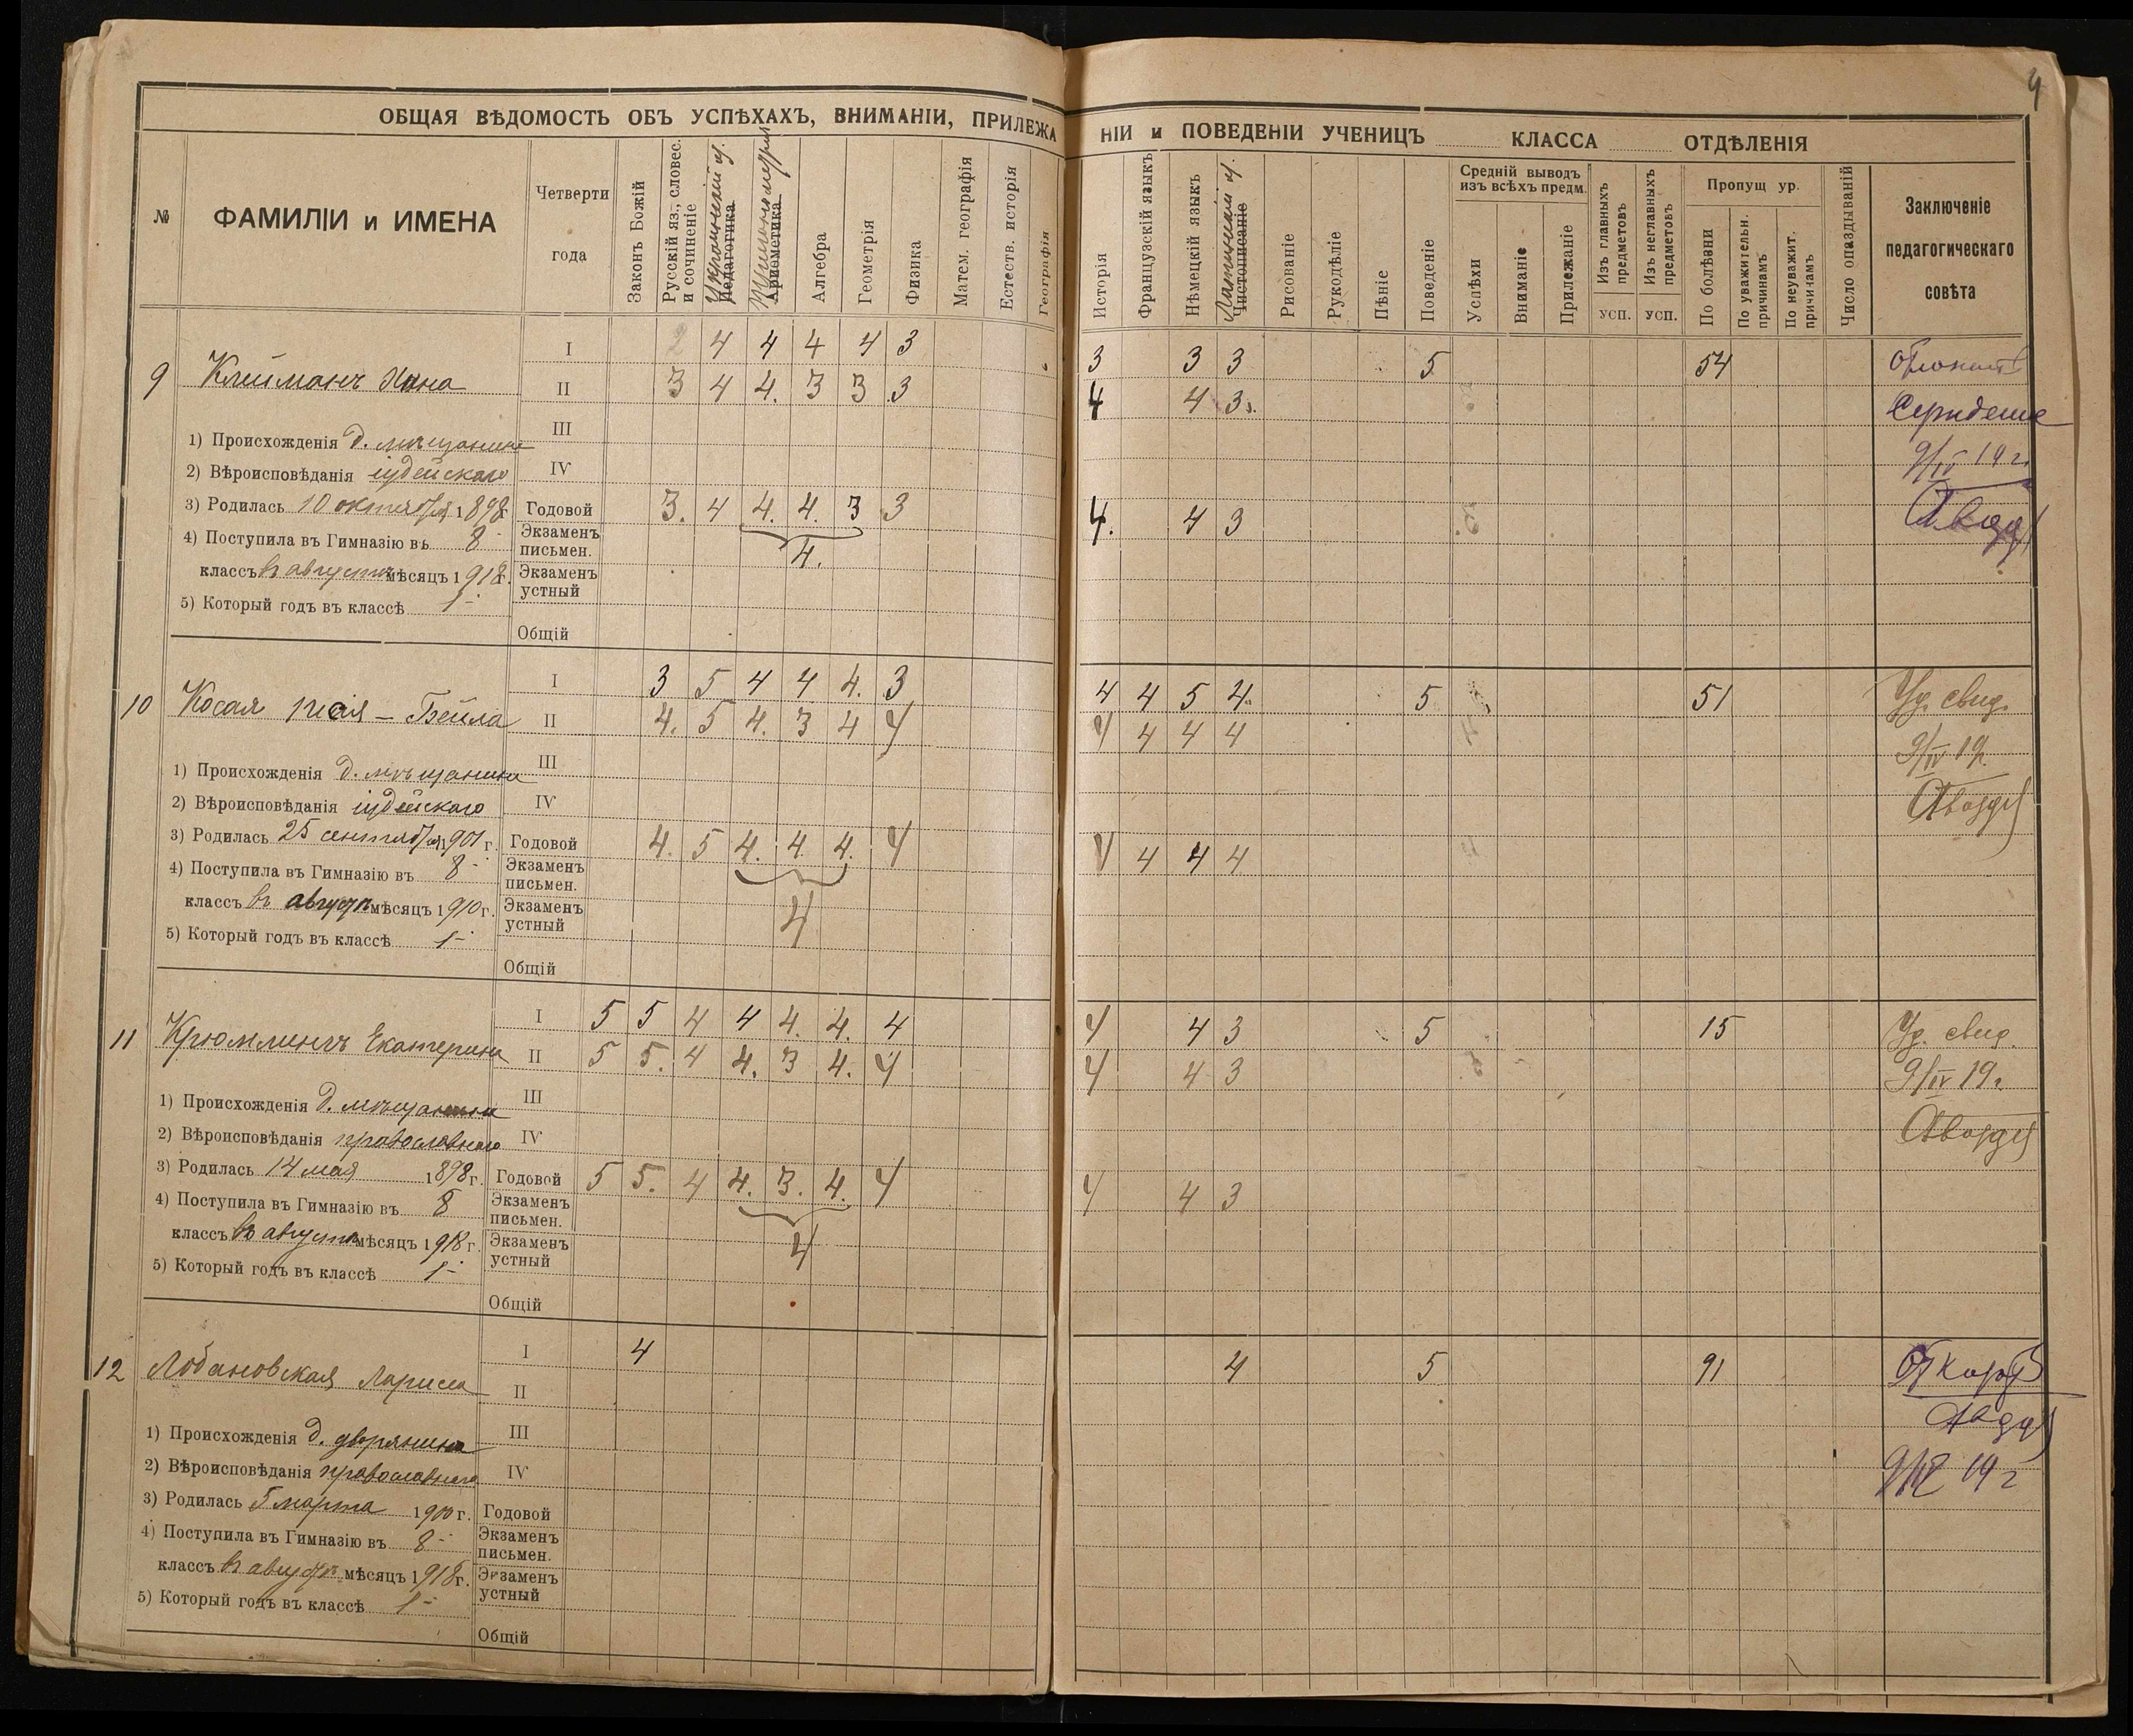 4
ОБЩАЯ ВѢДОМОСТЬ ОБЪ УСПѢХАХЪ, ВНИМАНІИ, ПРИЛЕЖА НІИ и ПОВЕДЕНІИ УЧЕНИЦЪ КЛАССА ОТДѢЛЕНІЯ
№
ФАМИЛІИ и ИМЕНА
Четверти года
Законъ Божій
Русскій яз., словес. и сочиненіе
Украинскій яз.
Педагогика
Тригонометрия
Ариѳметика
Алгебра
Геометрія
Физика
Матем. географія
Естеств. исторія
Географія
Исторія
Французскій языкъ
Нѣмецкій языкъ
Латинскій яз.
Чистописаніе
Рисованіе
Рукодѣліе
Пѣніе
Поведеніе
Средній выводъ изъ всѣхъ предм.
Успѣхи
Вниманіе
Прилежаніе
Изъ главныхъ предметовъ
усп.
Изъ неглавныхъ предметовъ
усп.
Пропущ ур.
По болѣзни
По уважительн. причинамъ
По неуважит. причинамъ
Число опаздываній
Заключеніе педагогическаго совѣта
9 Клейманъ Хана
I 2 4 4 4 4 3 3 3 3 5 54
II 3 4 4. 3 3 3 4 4 3
III
IV
1) Происхожденія д. мѣщанина
2) Вѣроисповѣданія іудейскаго
3) Родилась 10 октября 1898 г.
Годовой 3. 4 4. 4. 3 3 4. 4 3
4) Поступила въ Гимназію въ 8
Экзаменъ письмен. 4.
классъ въ августѣ мѣсяцъ 1918 г.
Экзаменъ устный
5) Который годъ въ классѣ 1
Общій
9/IV 19 г.
10 Косая - Бейла
I 3 5 4 4 4. 3 4 4 5 4. 5 51 Уд. свид.
II 4. 5 4. 3 4 4 4 4 4 4 9/IV 19 г.
III
IV
1) Происхожденія д. мѣщанина
2) Вѣроисповѣданія іудейскаго
3) Родилась 25 сентября 1901 г.
Годовой 4. 5 4. 4. 4. 4 4 4 4 4
4) Поступила въ Гимназію въ 8
Экзаменъ письмен.
классъ въ августѣ мѣсяцъ 1910 г.
Экзаменъ устный 4
5) Который годъ въ классѣ 1
Общій
11 Крюммингъ Екатерина
I 5 5 4 4 4. 4. 4 4 4 3 5 15 Уд. свид.
II 5 5. 4 4. 3 4. 4 4 4 3 9/IV 19 г.
III
IV
1) Происхожденія д. мѣщанина
2) Вѣроисповѣданія православнаго
3) Родилась 14 мая 1898 г.
Годовой 5 5. 4 4. 3. 4. 4 4 4 3
4) Поступила въ Гимназію въ 8
Экзаменъ письмен.
классъ въ августѣ мѣсяцъ 1918 г.
Экзаменъ устный 4
5) Который годъ въ классѣ 1
Общій
12 Лобановская Лариса
I 4 4 5 91
II
III
IV
1) Происхожденія д. дворянина
2) Вѣроисповѣданія православнаго
3) Родилась 5 марта 1900 г.
Годовой
4) Поступила въ Гимназію въ 8
Экзаменъ письмен.
классъ въ августѣ мѣсяцъ 1918 г.
Экзаменъ устный
5) Который годъ въ классѣ 1
Общій
9/IV 19 г